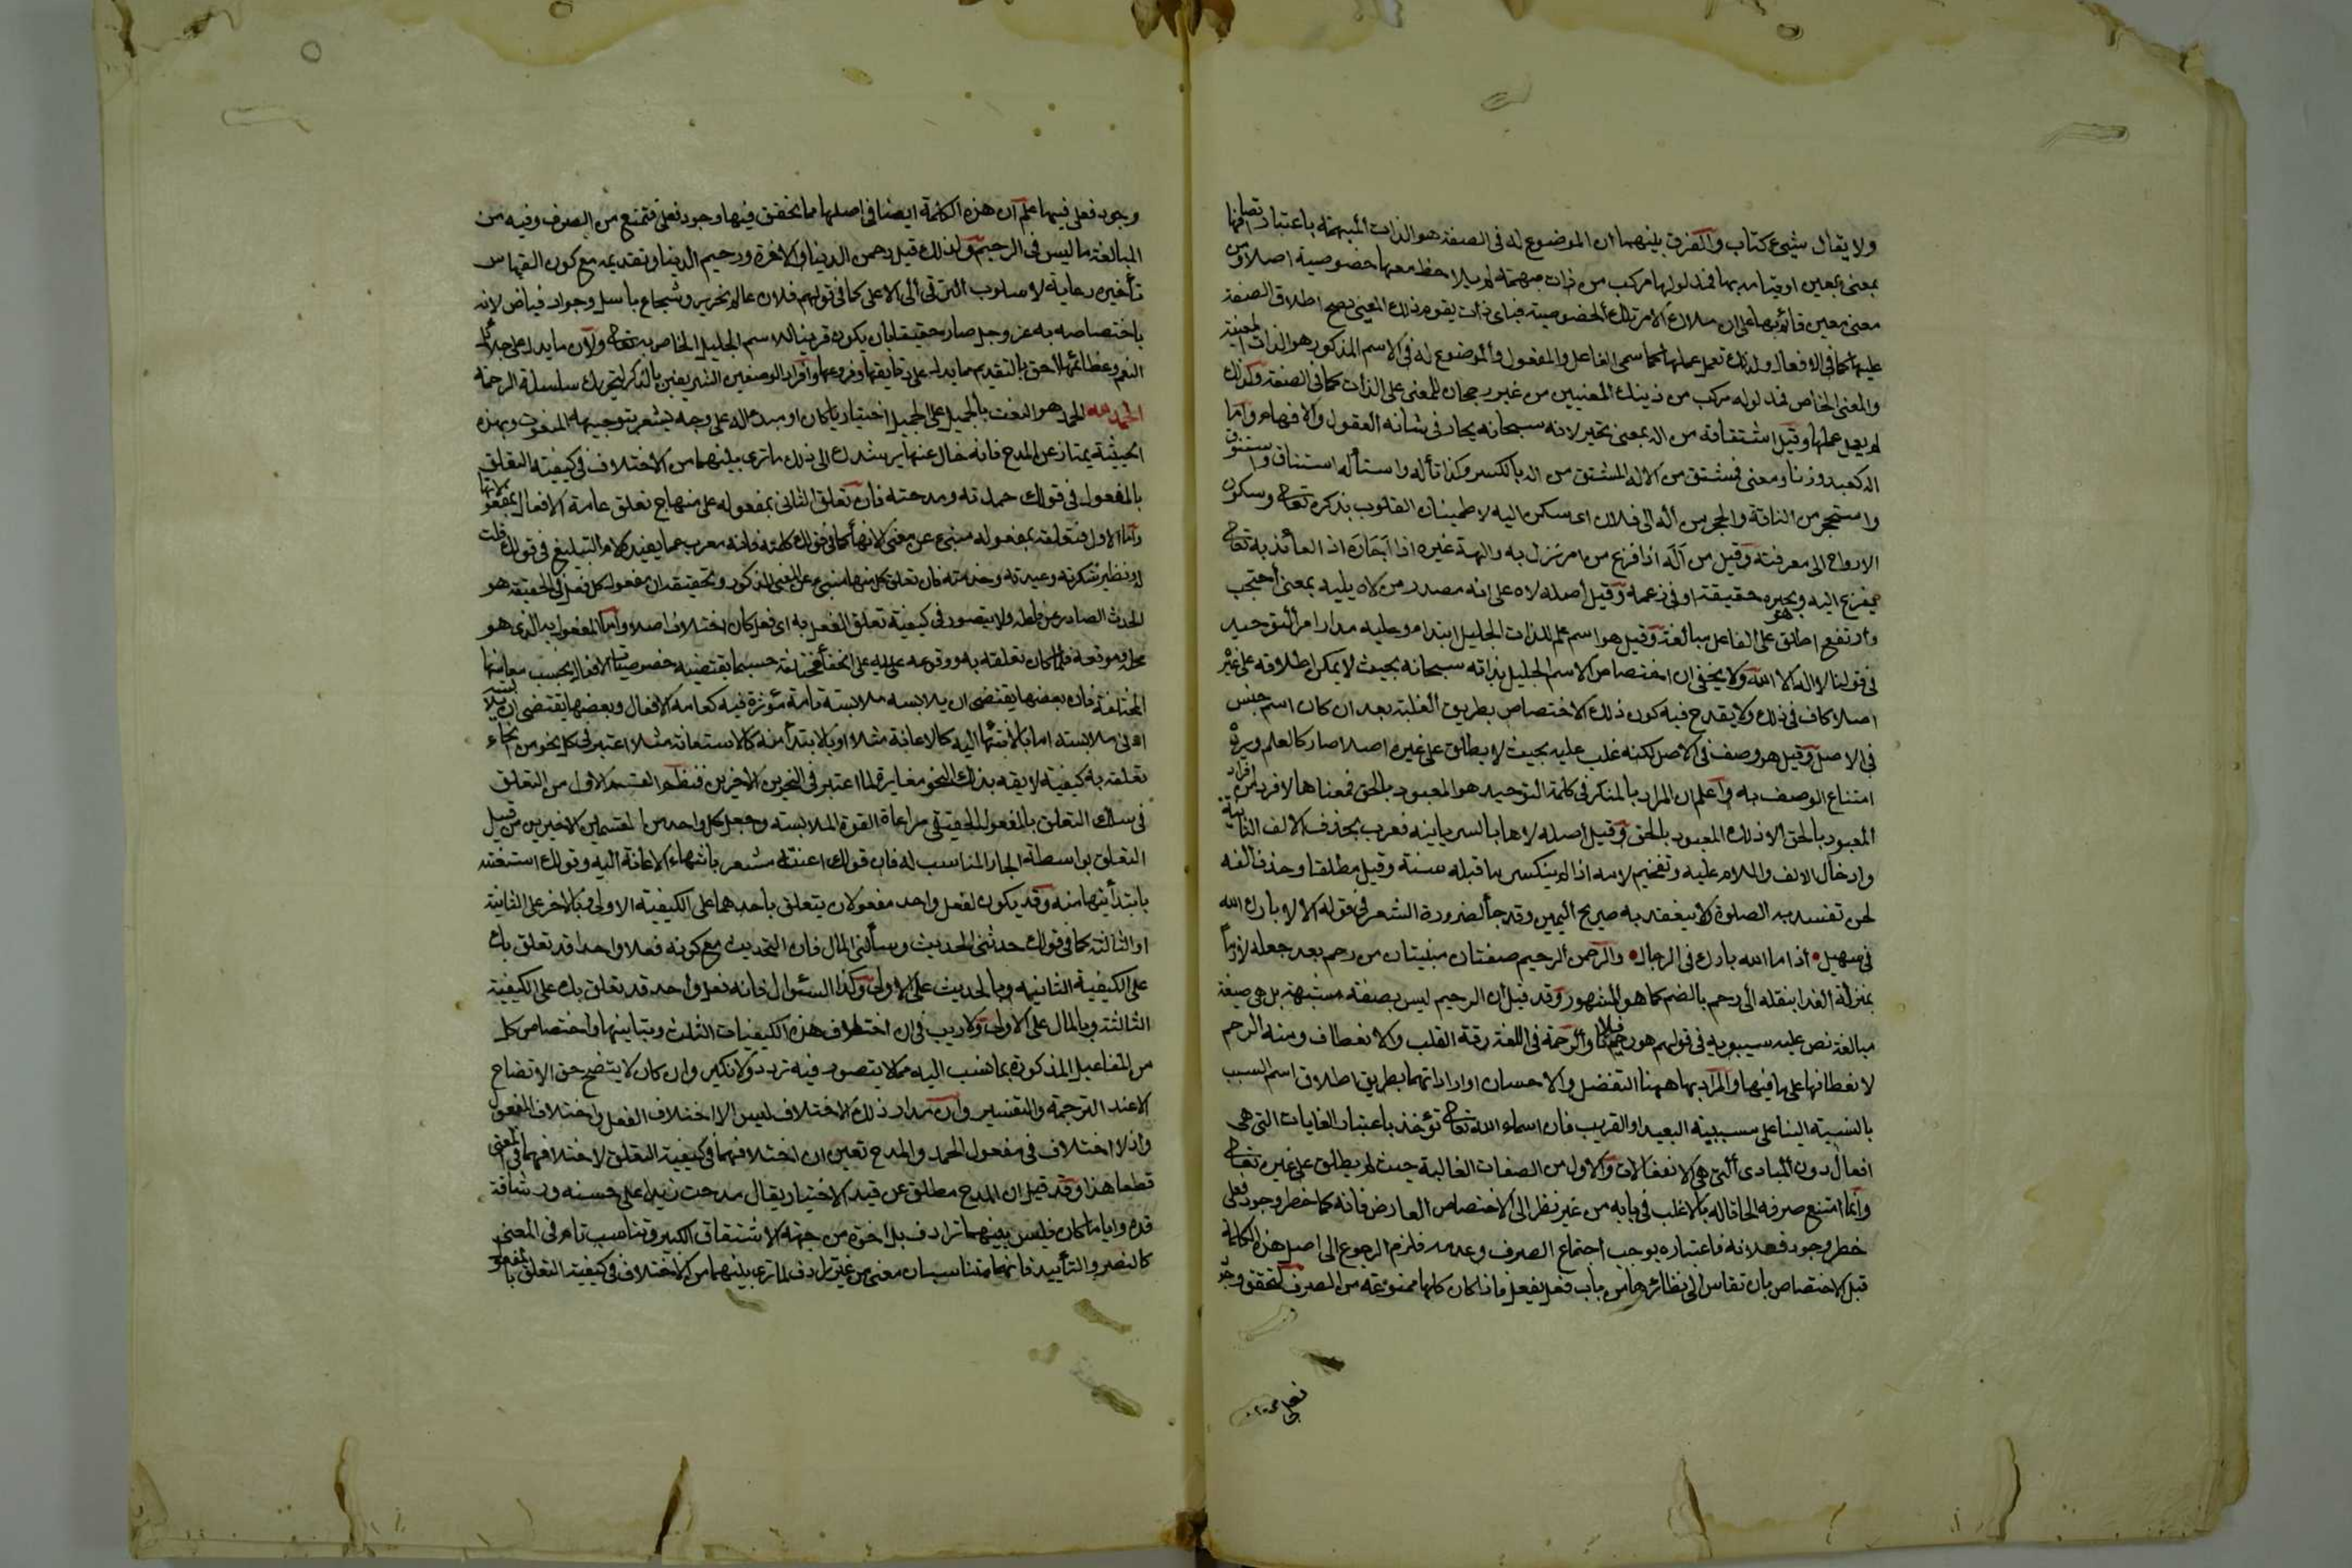 ولا يقال شيئ كتاب والفرق بينهما ان الموضوع له في الصفة هو الذات المبهمة باعتبار اتصافها
بمعنى معين او قيامه بها فمدلولها مركب من ذات مبهمة لم يلاحظ معها خصوصية اصلا ومن
معنى معين قائم بها على ان ملاك الامر تلك الخصوصية فباى ذات يقوم ذلك المعنى يصح اطلاق الصفة
عليها كما فى الافعال ولذلك تعمل عملها كاسمى الفاعل والمفعول والموضوع له فى الاسم المذكور هو الذات المعينة
والمعنى الخاص فمدلوله مركب من ذينك المعنيين من غير رجحان للمعنى على الذات كما فى الصفة ولذلك
لم يعمل عملها وقيل اشتقاقه من اله بمعنى تحير لانه سبحانه يحار فى شانه العقول والافهام واما
اله كعبد وزنا ومعنى فمشتق من الاله المشتق من اله بالكسر وكذا تأله واستأله استناق واستنوق
واستحجر من الناقة والحجر من اله الى فلان اى سكن اليه لاطمينان القلوب بذكره تعالى وسكون
الارواح الى معرفته وقيل من اله اذا فزع من امر نزل به والهه غيره اذا اجاره اذ العائذ به تعالى
يفزع اليه ويجيره حقيقة او فى زعمه وقيل اصله لاه على انه مصدر من لاه يليه بمعنى احتجب
وارتفع اطلق على الفاعل مبالغة وقيل هو اسم علم للذات الجليل ابتداء وعليه مدار امر التوحيد
فى قولنا لا اله الا الله ولا يخفى ان اختصاص الاسم الجليل بذاته سبحانه بحيث لا يمكن اطلاقه على غيره
اصلا كاف فى ذلك ولا يقدح فيه كون ذلك الاختصاص بطريق الغلبة بعد ان كان اسم جنس
فى الاصل وقيل هو وصف فى الاصل لكنه غلب عليه بحيث لا يطلق على غيره اصلا صار كالعلم ويرده
امتناع الوصف به واعلم ان المراد بالمنكر فى كلمة التوحيد هو المعبود بالحق فمعناها لا فرد من افراد
المعبود بالحق الا ذلك المعبود بالحق وقيل اصله لاها بالسريانية فعرب بحذف الالف الثانية
وادخال الالف واللام عليه وتفخيم لامه اذا لم ينكسر ما قبله سنة وقيل مطلقا وحذف الفه
لحن تفسد به الصلوة ولا ينعقد به صريح اليمين وقد جأ لضرورة الشعر فى قوله الا لا بارك الله
فى سهيل اذا ما الله بارك فى الرجال والرحمن الرحيم صفتان مبنيتان من رحم بعد جعله لازما
بمنزلة الغرائز بنقله الى رحم بالضم كما هو المشهور وقد قيل ان الرحيم ليس بصفة مشبهة بل هى صيغة
مبالغة نص عليه سيبويه فى قولهم هو رحيم فلانا والرحمة فى اللغة رقة القلب والانعطاف ومنه الرحم
لانعطافها على ما فيها والمراد بها ههنا التفضل والاحسان او ارادتهما بطريق اطلاق اسم السبب
بالنسبة الينا على مسببه البعيد او القريب فان اسماء الله تعالى تؤخذ باعتبار الغايات التى هى
افعال دون المبادى التى هى انفعالات والاول من الصفات الغالبة حيث لم يطلق على غيره تعالى
وانما امتنع صرفه الحاقا له بالاغلب فى بابه من غير نظر الى الاختصاص العارض فانه كما خطر وجود فعلى
خطر وجود فعلانة فاعتباره يوجب اجتماع الصرف وعدمه فلزم الرجوع الى اصل هذه الكلمة
قبل الاختصاص بان تقاس الى نظائرها من باب فعل يفعل فاذا كان كلها ممنوعة من الصرف لتحقق وجود
فعلى
وجود فعلى فيها علم ان هذه الكلمة ايضا فى اصلها مما تحقق فيها وجود فعلى فتمنع من الصرف وفيه من
المبالغة ما ليس فى الرحيم ولذلك قيل رحمن الدنيا والاخرة ورحيم الدنيا وتقديمه مع كون القياس
تأخيره رعاية لاسلوب الترقى الى الاعلى كما فى قولهم فلان عالم نحرير وشجاع باسل وجواد فياض لانه
باختصاصه به عز وجل صار حقيقا بان يكون قرينا للاسم الجليل الخاص به تعالى ولان ما يدل على جلائل
النعم وعظائمها احق بالتقديم مما يدل على دقايقها وفروعها وافراد الوصفين الشريفين بالذكر لتحريك سلسلة الرحمة
الحمد لله الحمد هو النعت بالجميل على الجميل اختياريا كان او مبدأ له على وجه يشعر بتوجيهه الى المنعوت وبهذه
الحيثية يمتاز عن المدح فانه خال عنها يرشدك الى ذلك ما ترى بينهما من الاختلاف فى كيفية التعلق
بالمفعول فى قولك حمدته ومدحته فان تعلق الثانى بمفعوله على منهاج تعلق عامة الافعال بمفعولاتها
واما الاول فتعلقه بمفعوله منبئ عن معنى الانهأ كما فى قولك كلمته فانه معرب عما يفيده لام التبليغ فى قولك قلت
له ونظيره شكرته وعبدته وخدمته فان تعلق كل منها منبئ عن المعنى المذكور وتحقيقه ان مفعول كل فعل فى الحقيقة هو
الحدث الصادر عن فاعله ولا يتصور فى كيفية تعلق الفعل به اى فعل كان اختلاف اصلا واما المفعول به الذى هو
محله وموقعه فلما كان تعلقه به ووقوعه عليه على انحأ مختلفة حسبما يقتضيه خصوصيات الافعال بحسب معانيها
المختلفة فان بعضها يقتضى ان يلابسه ملابسة تامة مؤثرة فيه كعامة الافعال وبعضها يقتضى ان يلابسه
ادنى ملابسة اما بالانتهأ اليه كالاعانة مثلا او بالابتدأ منه كالاستعانة مثلا اعتبر فى كل نحو من انحاء
تعلقه به كيفية لايقة بذلك النحو مغايرة لما اعتبر فى النحوين الاخيرين فنظم القسم الاول من التعلق
فى سلك التعلق بالمفعول الحقيقى مراعاة لقوة الملابسة وجعل كل واحد من القسمين الاخيرين من قبيل
التعلق بواسطة الجار المناسب له فان قولك اعنته مشعر بانتهاء الاعانة اليه وقولك استعنته
بابتدأئها منه وقد يكون لفعل واحد مفعولان يتعلق باحدهما على الكيفية الاولى وبالاخر على الثانية
او الثالثة كما فى قولك حدثنى الحديث وسألنى المال فان التحديث مع كونه فعلا واحدا قد تعلق بك
على الكيفية الثانية وبالحديث على الاولى وكذا السئوال فانه فعل واحد قد تعلق بك على الكيفية
الثالثة وبالمال على الاولى ولا ريب فى ان اختلاف هذه الكيفيات الثلث وتباينها واختصاص كل
من المفاعيل المذكورة بما نسب اليه مما لا يتصور فيه تردد ولا نكير وان كان لا يتضح حق الاتضاح
الا عند الترجمة والتفسير وان مدار ذلك الاختلاف ليس الا اختلاف الفعل او اختلاف المفعول
واذ لا اختلاف فى مفعول الحمد والمدح تعين ان اختلافهما فى كيفية التعلق لاختلافهما فى المعنى
قطعا هذا وقد قيل ان المدح مطلق عن قيد الاختيار يقال مدحت زيدا على حسنه ورشاقة
قده وايا ما كان فليس بينهما ترادف بل اخوة من جهة الاشتقاق الكبير وتناسب تام فى المعنى
كالنصر والتأييد فانهما متناسبان معنى من غير ترادف لما ترى بينهما من الاختلاف فى كيفية التعلق بالمفعول